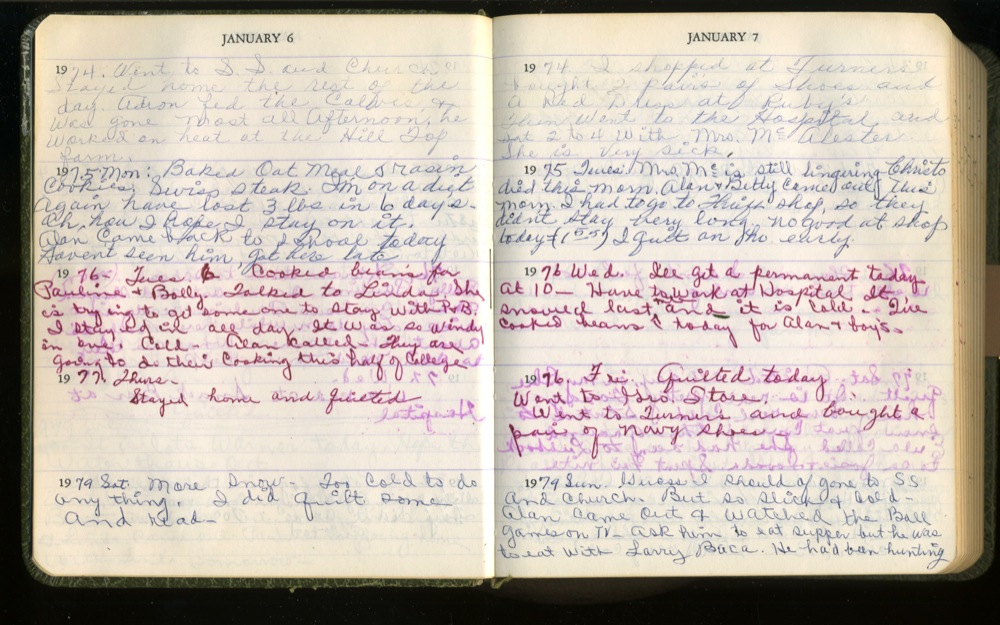 JANUARY 6
1974. Went to S.S. and Church.
Stayed home the rest of the
day. Adron fed the Calves, &
was gone most all afternoon, he
worked on heat at the Hill Top
Farm.
1975 Mon: Baked Oat Meal & rasin
Cookies, Swiss steak. I'm on a diet
again have lost 3 lbs in 6 days.
Ah, how I hope I stay on it.
Alan came back to school today
Havent seen him got here late
1976- Tues 6 Cooked beans for
Pauline & Bolly. Talked to Linda. She
is trying to get some one to stay with P&B.
I stayed in all day. It was so windy
in eve. Cold- Alan called- They are
going to do their cooking this half of College
1977. Thurs-
Stayed home and quilted
1979 Sat. More Snow- Too Cold to do
any thing. I did quilt some
and read-
JANUARY 7
1974 I shopped at Turners
bought 2 pairs of Shoes and
a Red at Ruby's
Then went to the Hospital and
sat 2 to 4 with Mrs. McAlester
She is very sick.
1975 Tues. Mrs. Mc is still lingering
did this morn. Alan & Betty came out this
morn. I had to go to Thrift shop, so they
didn't stay very long. no good at shop
today I quit on tho. early.
1976 Wed. I'll get a permanent today
at 10- Have to work at Hospital It
snowed last and it is cold. I've
cooked beans today for Alan & boys.
1976 Fri. Quilted today
Went to Store.
Went to Turners and bought a
pair of Navy shoes
1979 Sun. Guess I should of gone to SS
and Church. But so slick & cold-
Alan came out & watched the Ball
games on TV- Ask him to eat supper but he was
to eat with Larry Baca. He had been hunting